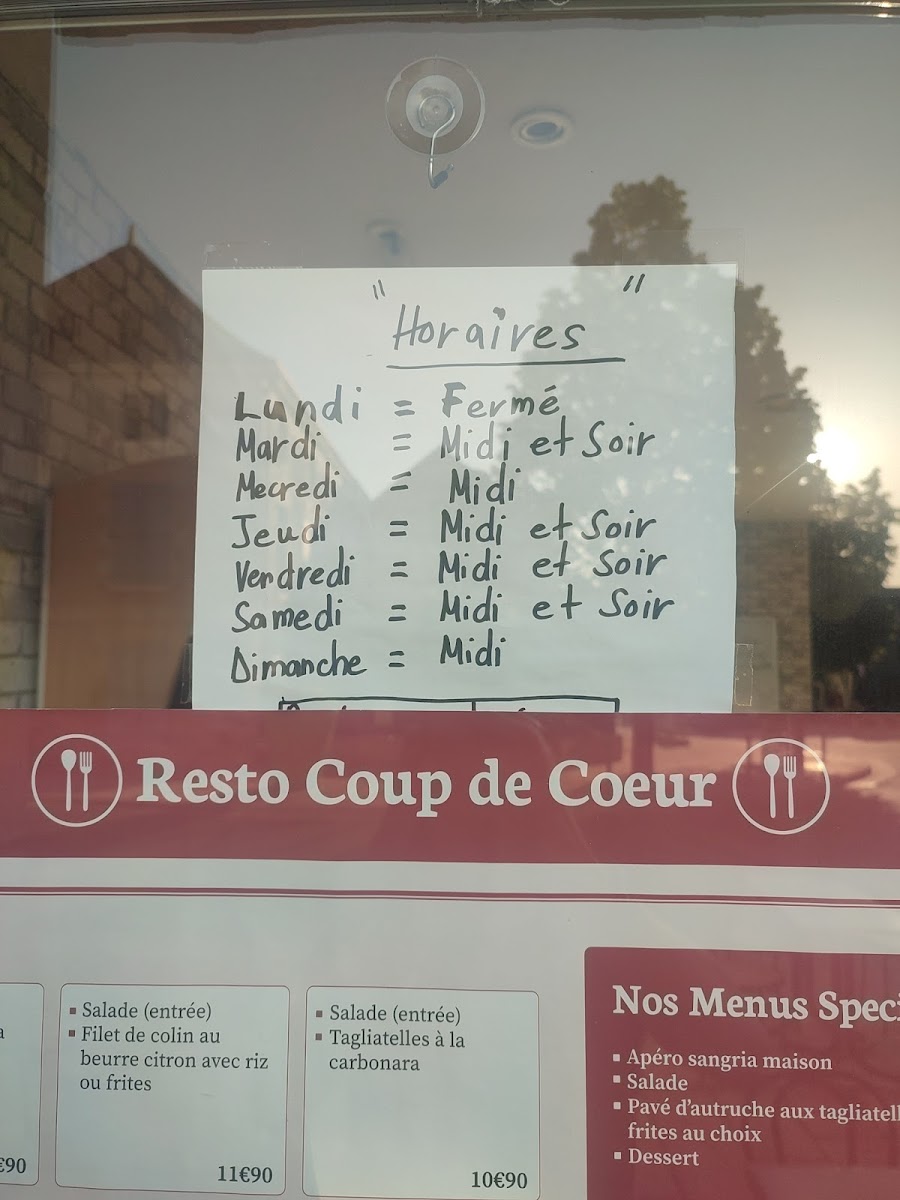 " Horaires "
Lundi = Fermé
Mardi = Midi et Soir
Mecredi = Midi
Jeudi = Midi et Soir
Vendredi = Midi et Soir
Samedi = Midi et Soir
Dimanche = Midi
Resto Coup de Coeur
▪ Salade (entrée)
▪ Filet de colin au
beurre citron avec riz
ou frites
11€90
▪ Salade (entrée)
▪ Tagliatelles à la
carbonara
10€90
€90
Nos Menus Speci
▪ Apéro sangria maison
▪ Salade
▪ Pavé d'autruche aux tagliatell
frites au choix
▪ Dessert